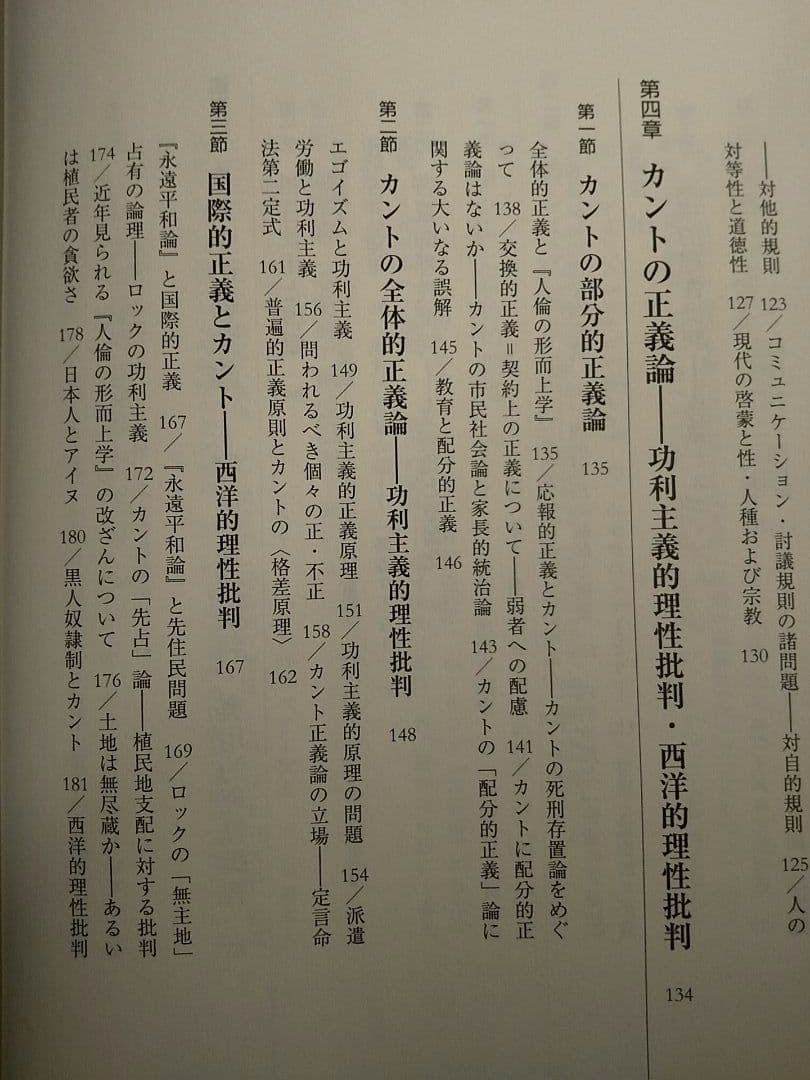 ――対他的規則 123／コミュニケーション・討議規則の諸問題――対自的規則 125／人の
対等性と道徳性 127／現代の啓蒙と性・人種および宗教 130
第四章 カントの正義論――功利主義的理性批判・西洋的理性批判 134
第一節 カントの部分的正義論 135
全体的正義と『人倫の形而上学』 135／応報的正義とカント――カントの死刑存置論をめぐ
って 138／交換的正義＝契約上の正義について――弱者への配慮 141／カントに配分的正
義論はないか――カントの市民社会論と家長的統治論 143／カントの「配分的正義」論に
関する大いなる誤解 145／教育と配分的正義 146
第二節 カントの全体的正義論――功利主義的理性批判 148
エゴイズムと功利主義 149／功利主義的正義原理 151／功利主義的原理の問題 154／派遣
労働と功利主義 156／問われるべき個々の正・不正 158／カント正義論の立場――定言命
法第二定式 161／普遍的正義原則とカントの〈格差原理〉 162
第三節 国際的正義とカント――西洋的理性批判 167
『永遠平和論』と国際的正義 167／『永遠平和論』と先住民問題 169／ロックの「無主地」
占有の論理――ロックの功利主義 172／カントの「先占」論――植民地支配に対する批判
174／近年見られる『人倫の形而上学』の改ざんについて 176／土地は無尽蔵か――あるい
は植民者の貪欲さ 178／日本人とアイヌ 180／黒人奴隷制とカント 181／西洋的理性批判